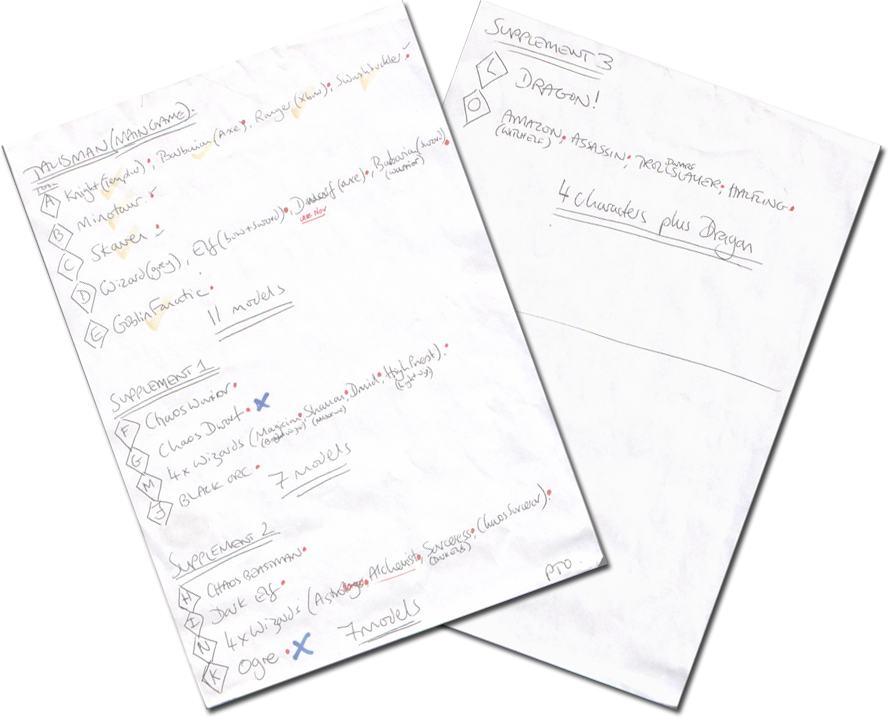 TALISMAN (MAIN GAME).
A Knight (Templar), Barbarian (Axe), Ranger (Xbow), Swashbuckler
B Minotaur
C Skaven
D Wizard (grey), Elf (bow + sword), (axe), Barbarian (sword)
(warrior)
E Goblin Fanatic.
11 models
SUPPLEMENT 1
F Chaos Warrior
G Chaos Dwarf. X
M 4x Wizards (Magician, Shaman, Druid, High Priest).
J BLACK ORC
7 models
SUPPLEMENT 2
H CHAOS BEASTMAN
I Dark Elf
N 4x Wizards (Alchemist, Sorceress, Chaos Sorceror).
(DARK ELF)
K Ogre X
7 models
PTO.
SUPPLEMENT 3
L DRAGON!
O AMAZON, ASSASSIN, TROLLSLAYER, HALFLING
(WITCH ELF) DWARF
4 characters plus Dragon